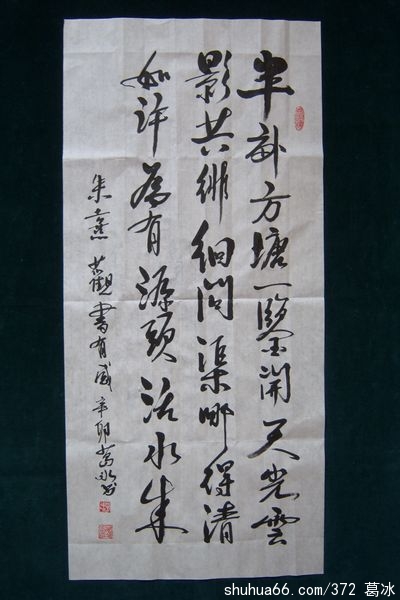 半畝方塘一鑒開天光雲
影共徘徊問渠哪得清
如許為有源頭活水來
朱熹觀書有感辛卯葛冰书
shuhua66.com/372 葛冰